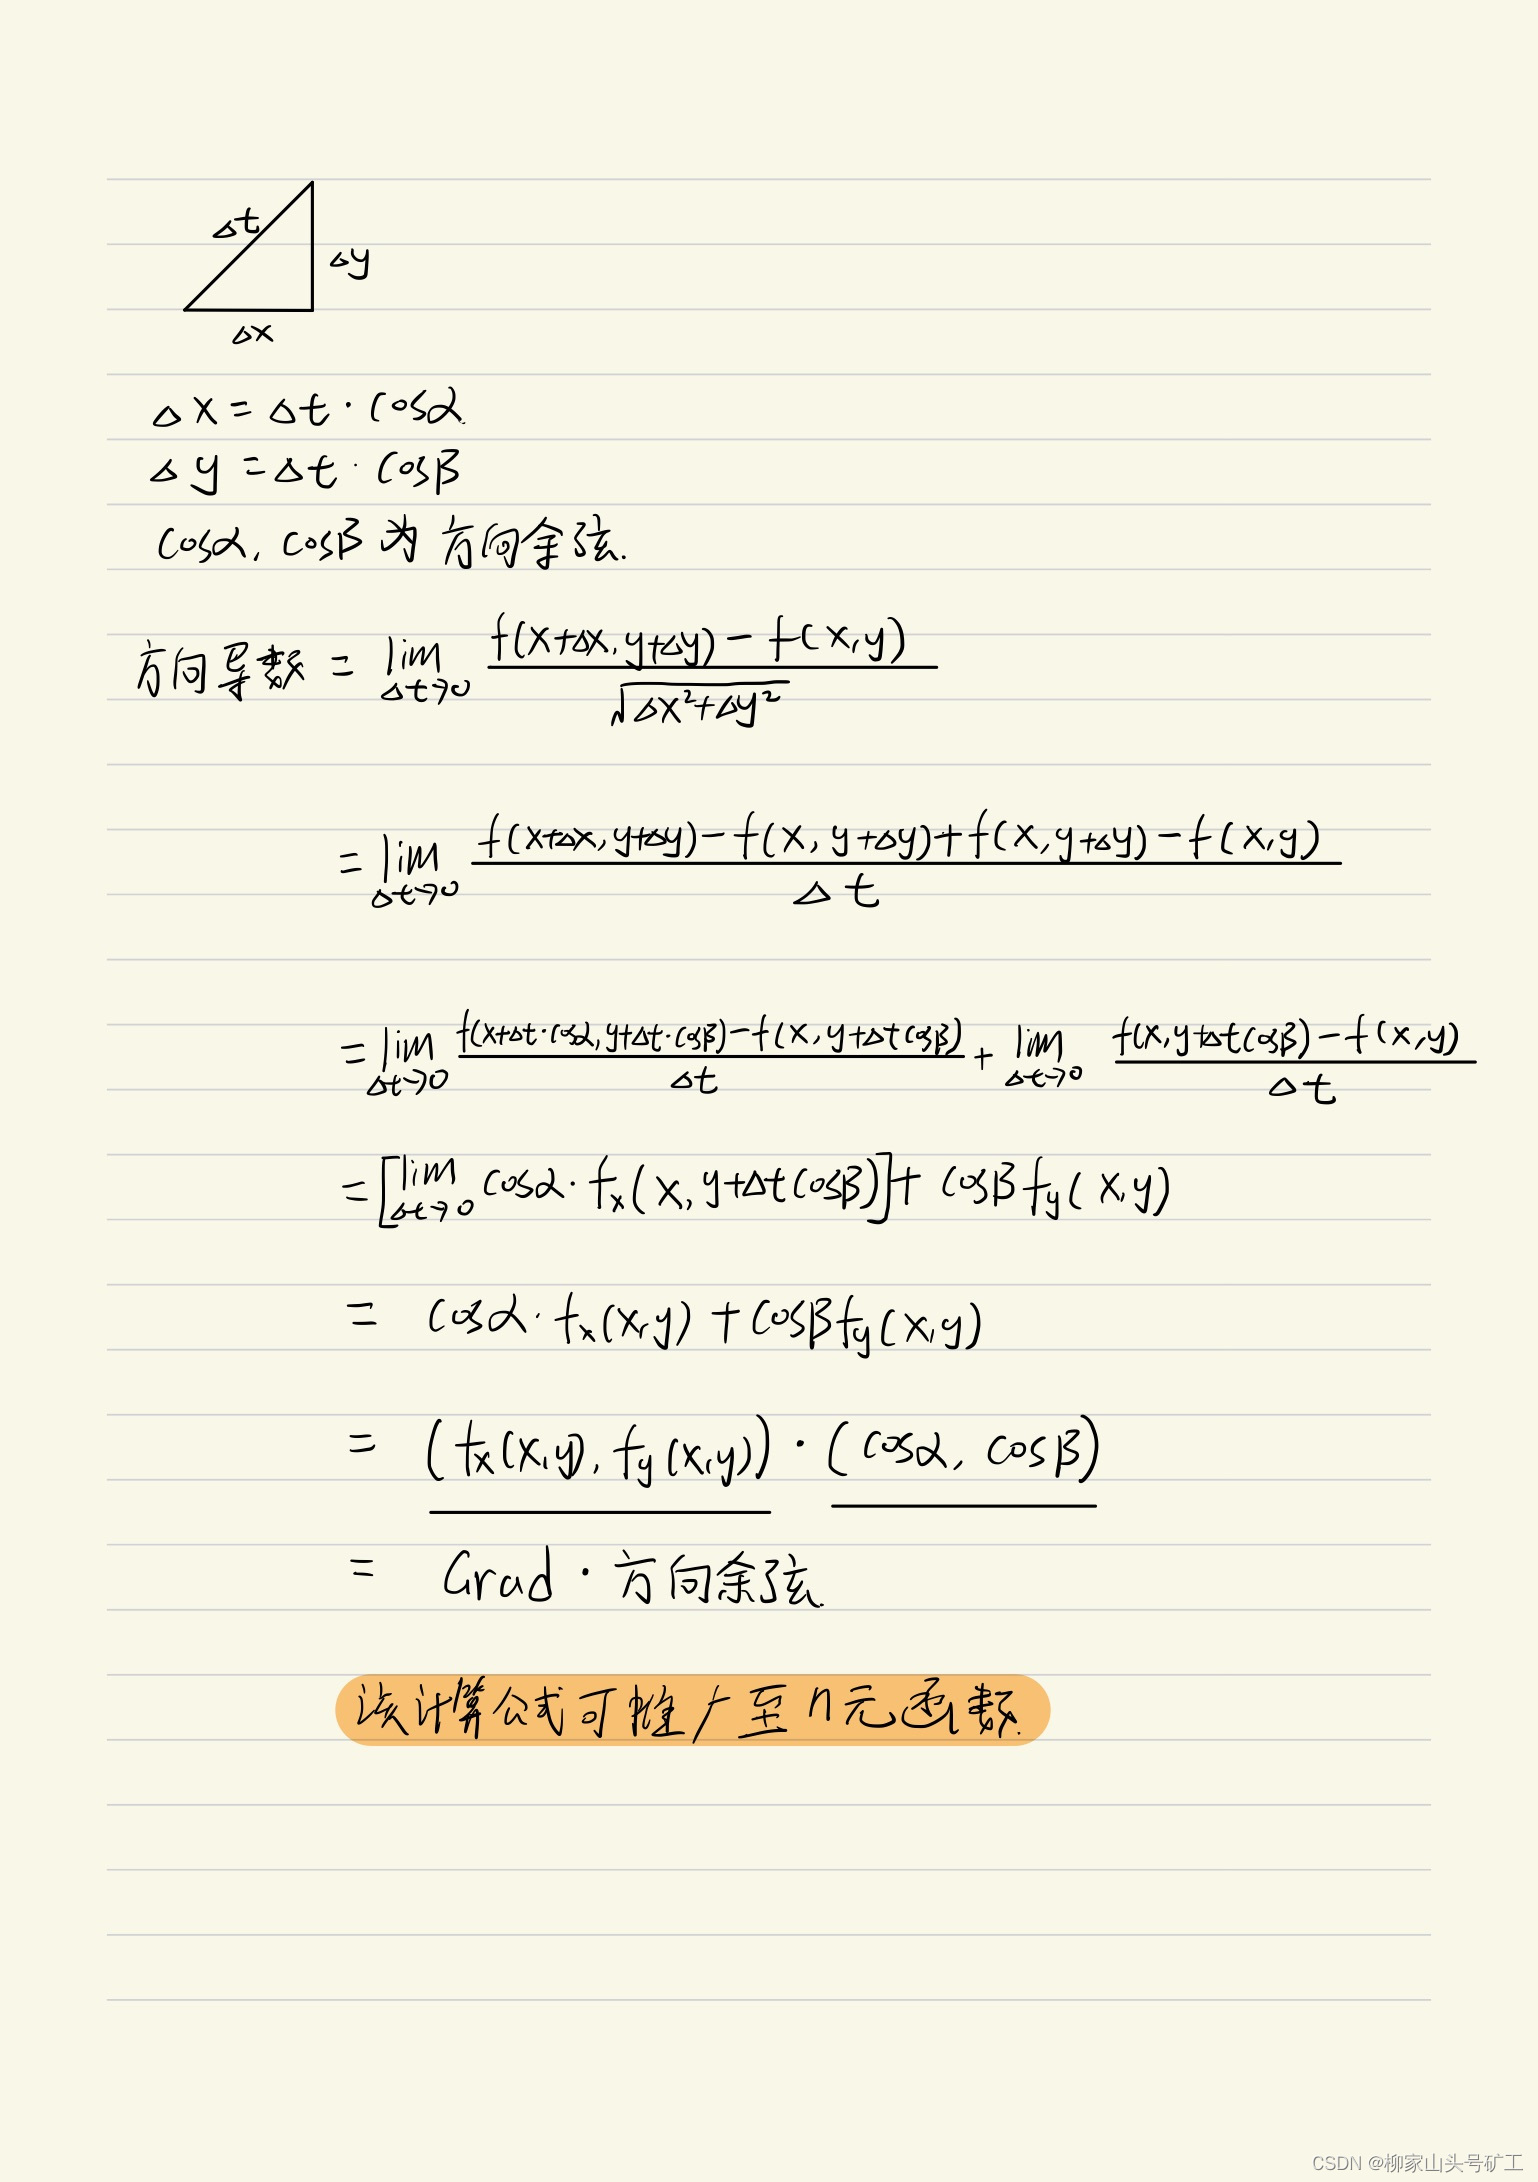 Δt
Δy
Δx
Δx = Δt · cosα
Δy = Δt · cosβ
cosα, cosβ 为 方向余弦.
方向导数 = lim Δt→0 (f(x+Δx, y+Δy) − f(x,y)) / √(Δx²+Δy²)
= lim Δt→0 (f(x+Δx, y+Δy) − f(x, y+Δy) + f(x, y+Δy) − f(x,y)) / Δt
= lim Δt→0 (f(x+Δt·cosα, y+Δt·cosβ) − f(x, y+Δt cosβ)) / Δt + lim Δt→0 (f(x, y+Δt cosβ) − f(x,y)) / Δt
= [lim Δt→0 cosα · fx(x, y+Δt cosβ)] + cosβ fy(x,y)
= cosα · fx(x,y) + cosβ fy(x,y)
= (fx(x,y), fy(x,y)) · (cosα, cosβ)
= Grad · 方向余弦.
该计算公式可推广至n元函数.
CSDN @柳家山头号矿工